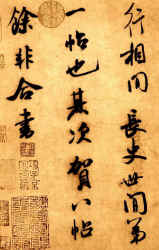 行相間　長史世間第
一帖也其次賀八帖
餘非合書